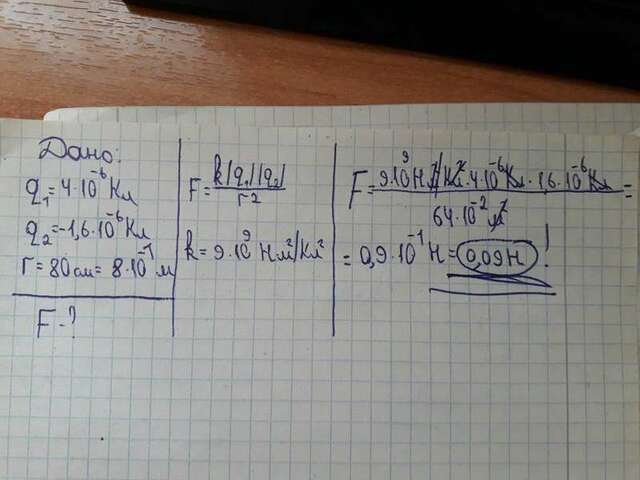 Дано:
q₁ = 4·10⁻⁶ Кл
q₂ = -1,6·10⁻⁶ Кл
r = 80 см = 8·10⁻¹ м
F - ?
F = k|q₁||q₂| / r²
k = 9·10⁹ Нм²/Кл²
F = 9·10⁹ Н м²/Кл²·4·10⁻⁶ Кл·1,6·10⁻⁶ Кл / 64·10⁻² м² =
= 0,9·10⁻¹ Н = 0,09 Н !